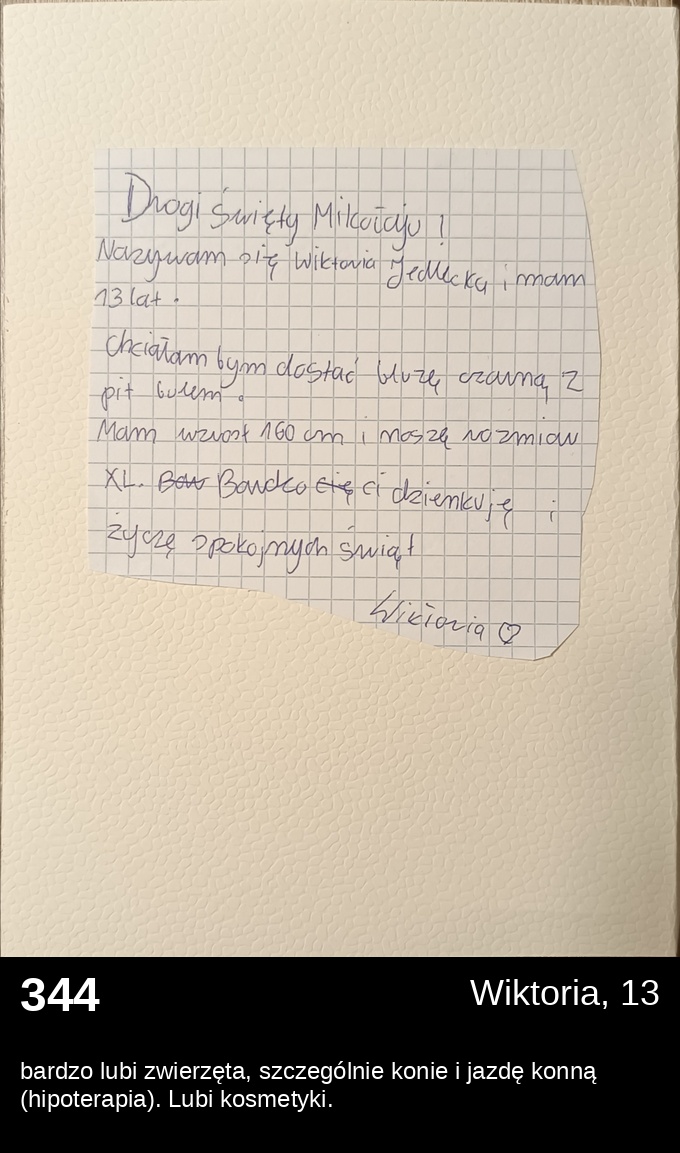 Drogi Święty Mikołaju !
Nazywam się Wiktoria Jedlecka i mam
13 lat .
Chciałam bym dostać bluzę czarną z
pit bulem .
Mam wzrost 160 cm i noszę rozmiar
XL. Bar Bardzo cię ci dzienkuję i
życzę spokojnych świąt
Wiktoria ♡
344
Wiktoria, 13
bardzo lubi zwierzęta, szczególnie konie i jazdę konną
(hipoterapia). Lubi kosmetyki.